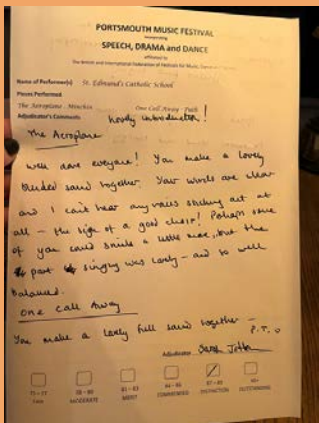 PORTSMOUTH MUSIC FESTIVAL
incorporating
SPEECH, DRAMA and DANCE
affiliated to
The British and International Federation of Festivals for Music,
Name of Performer(s) St. Edmund's Catholic School
Pieces Performed
The Aeroplane - Minchin One Call Away - Puth
Adjudicator's Comments Lovely introduction!
The Aeroplane
Well done everyone! You make a lovely
blended sound together. Your words are clear
and I can't hear any voices sticking out at
all – the sign of a good choir! Perhaps some
of you could smile a little more, but the
part singing was lovely – and so well
balanced.
One Call Away
You make a lovely full sound together –
P.T.O
Adjudicator Sarah
75 - 77 78 - 80 81 - 83 84 - 86 87 - 89 90+
MODERATE MERIT COMMENDED DISTINCTION OUTSTANDING